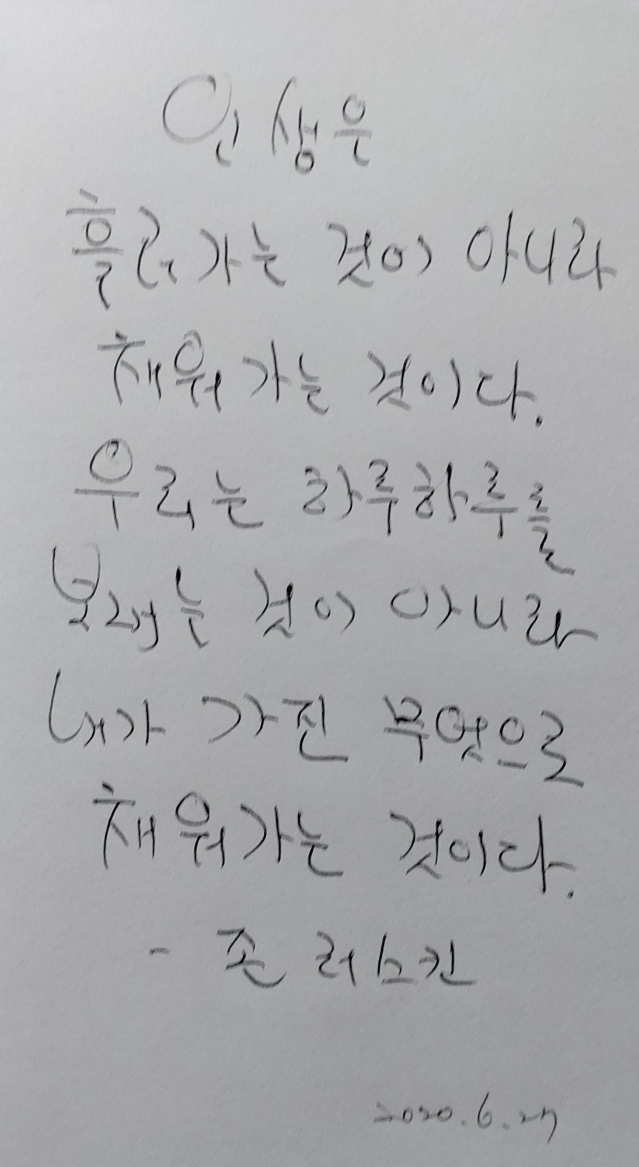 인생은
흘러가는 것이 아니라
채워가는 것이다.
우리는 하루하루를
보내는 것이 아니라
내가 가진 무엇으로
채워가는 것이다.
- 존 러스킨
2020.6.27